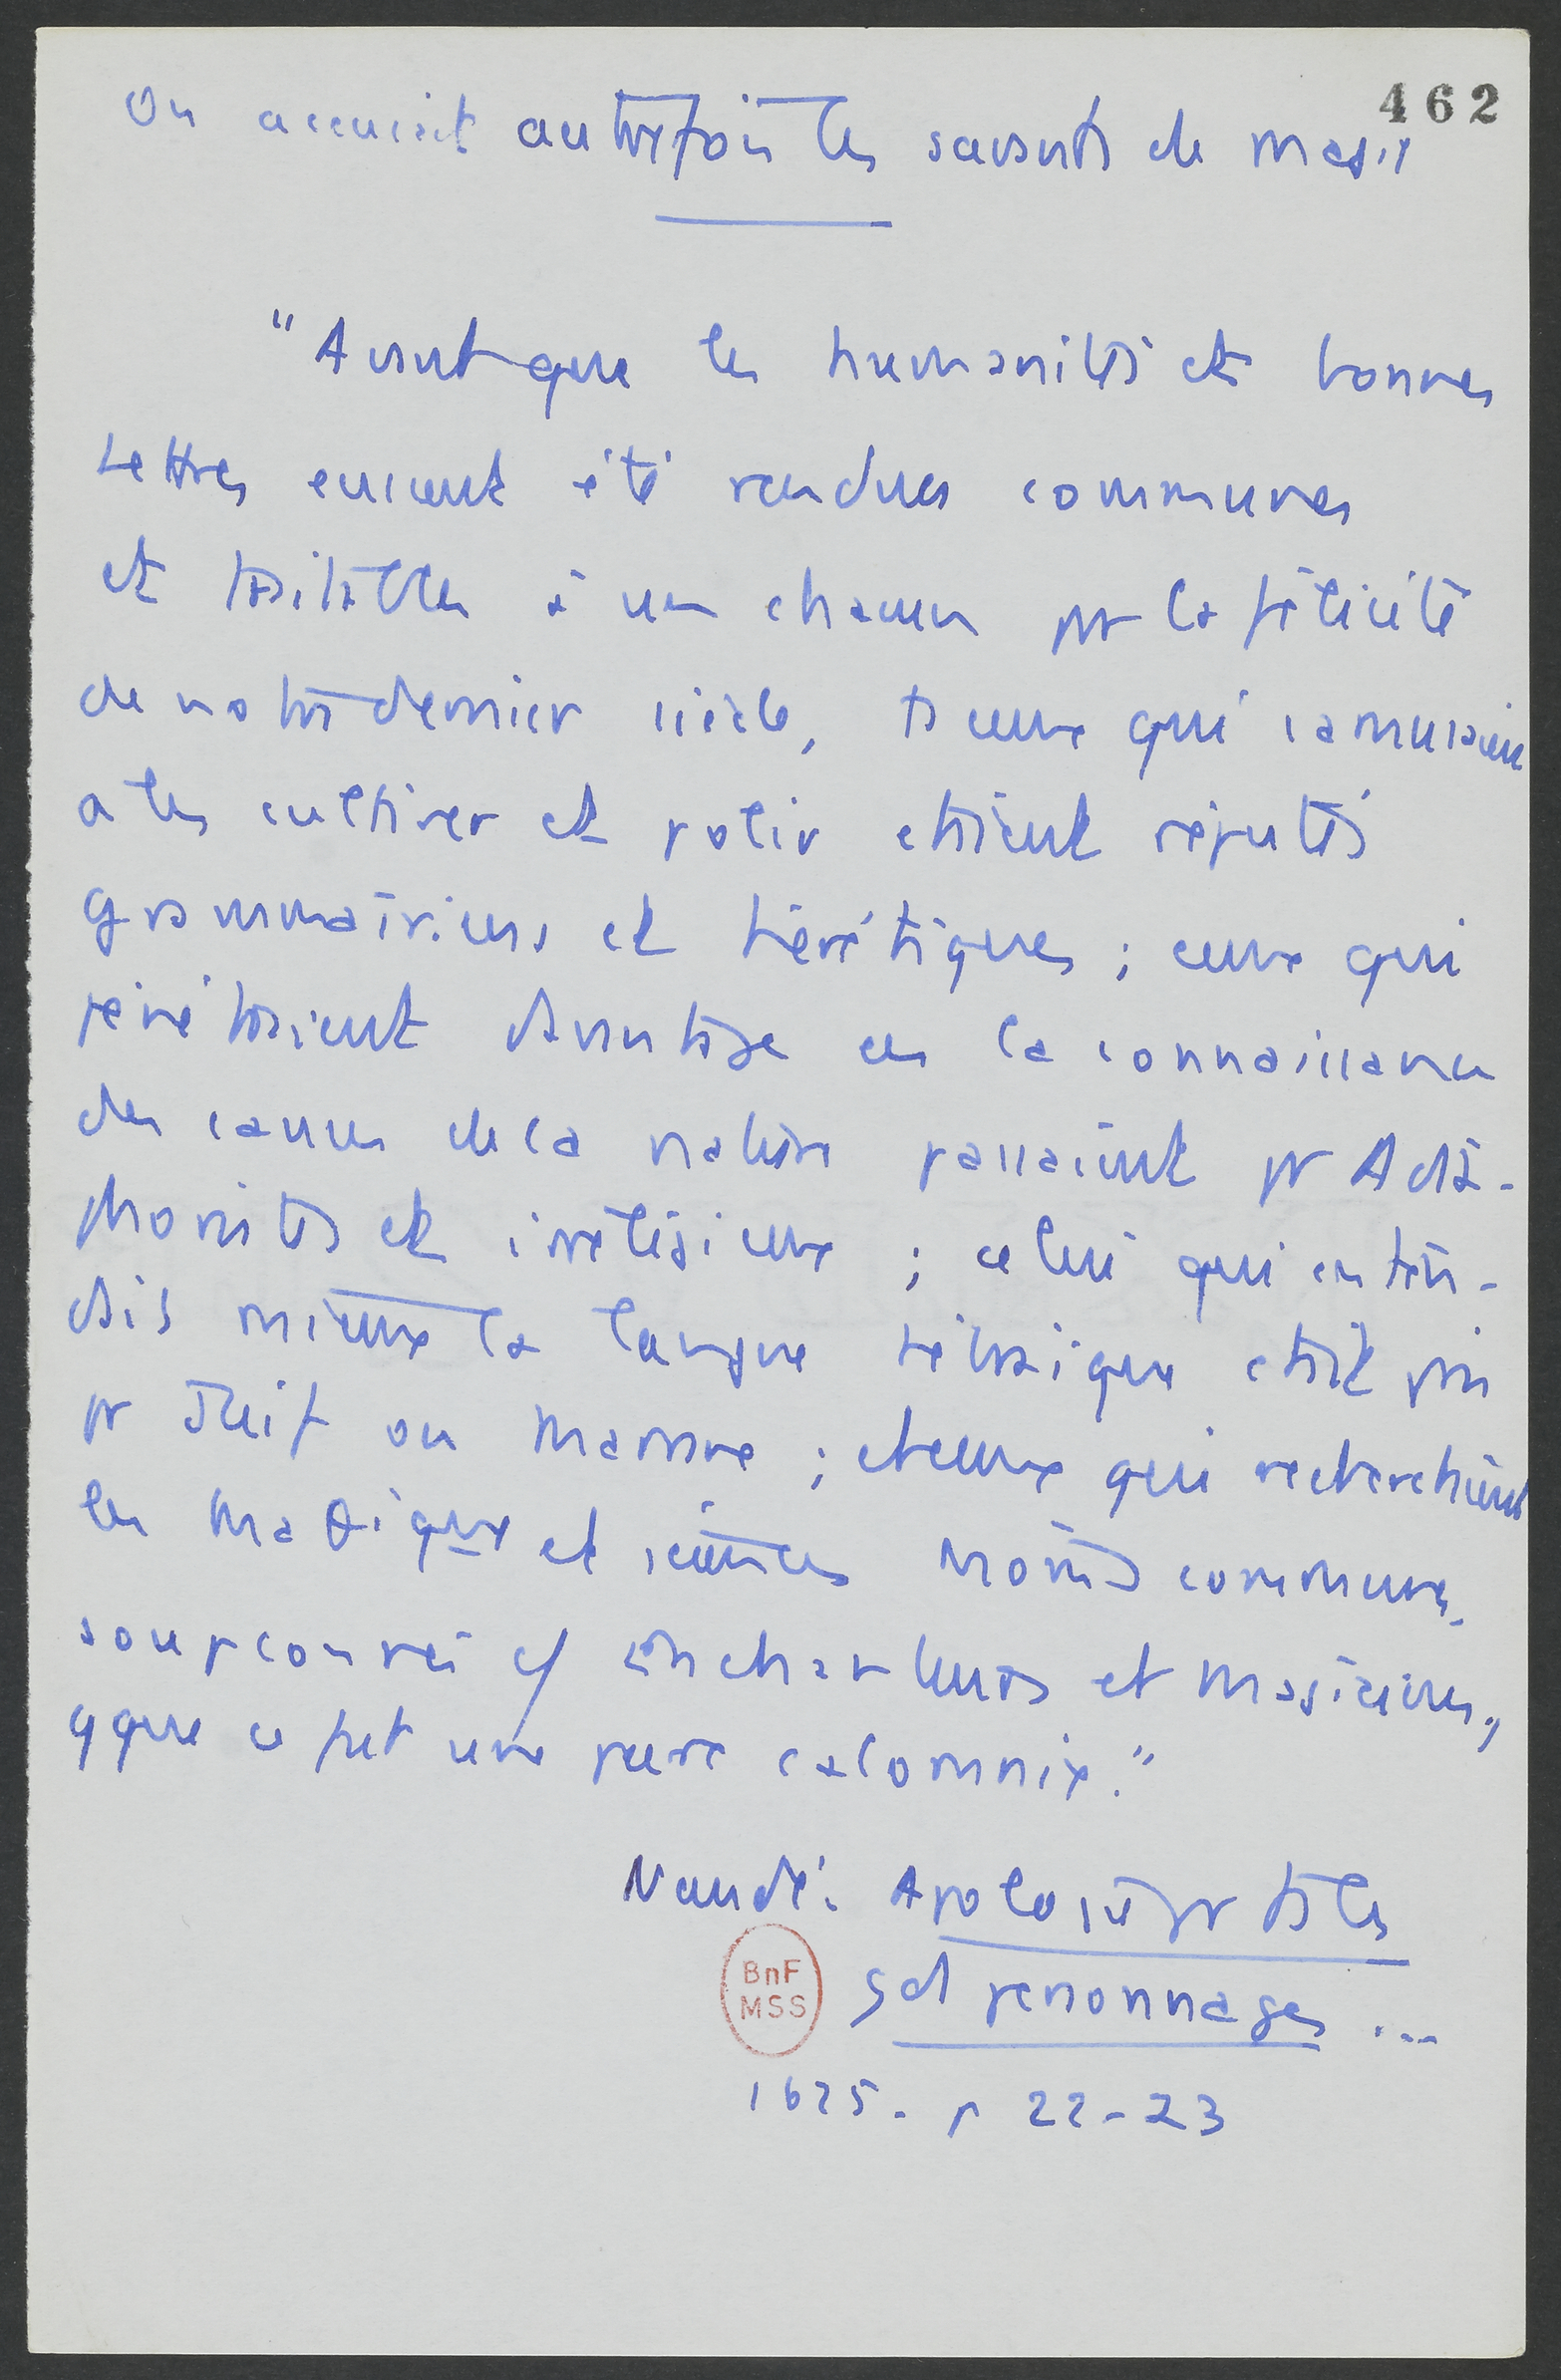 462
On accusait autrefois les savants de magie
"Avant que les humanités et bonnes
lettres eussent été rendues communes
et traitables à un chacun pr la félicité
de notre dernier siècle, ts ceux qui s'amusaient
a les cultiver et polir etaient réputés
grammairiens et hérétiques ; ceux qui
pénétraient davantage en la connaissance
des causes de la nature passaient pr
et irreligieux ; celui qui enten-
dait mieux la langue hébraique etait pris
pr Juif ou Marrane ; et ceux qui recherchaient
les Maθique et sciences moins communes,
soupconnés cf enchanteurs et magiciens,
qque ce fut une pure calomnie."
Naudé : Apologie pr ts les
gds personnages ...
BnF
MSS
1625. p 22-23